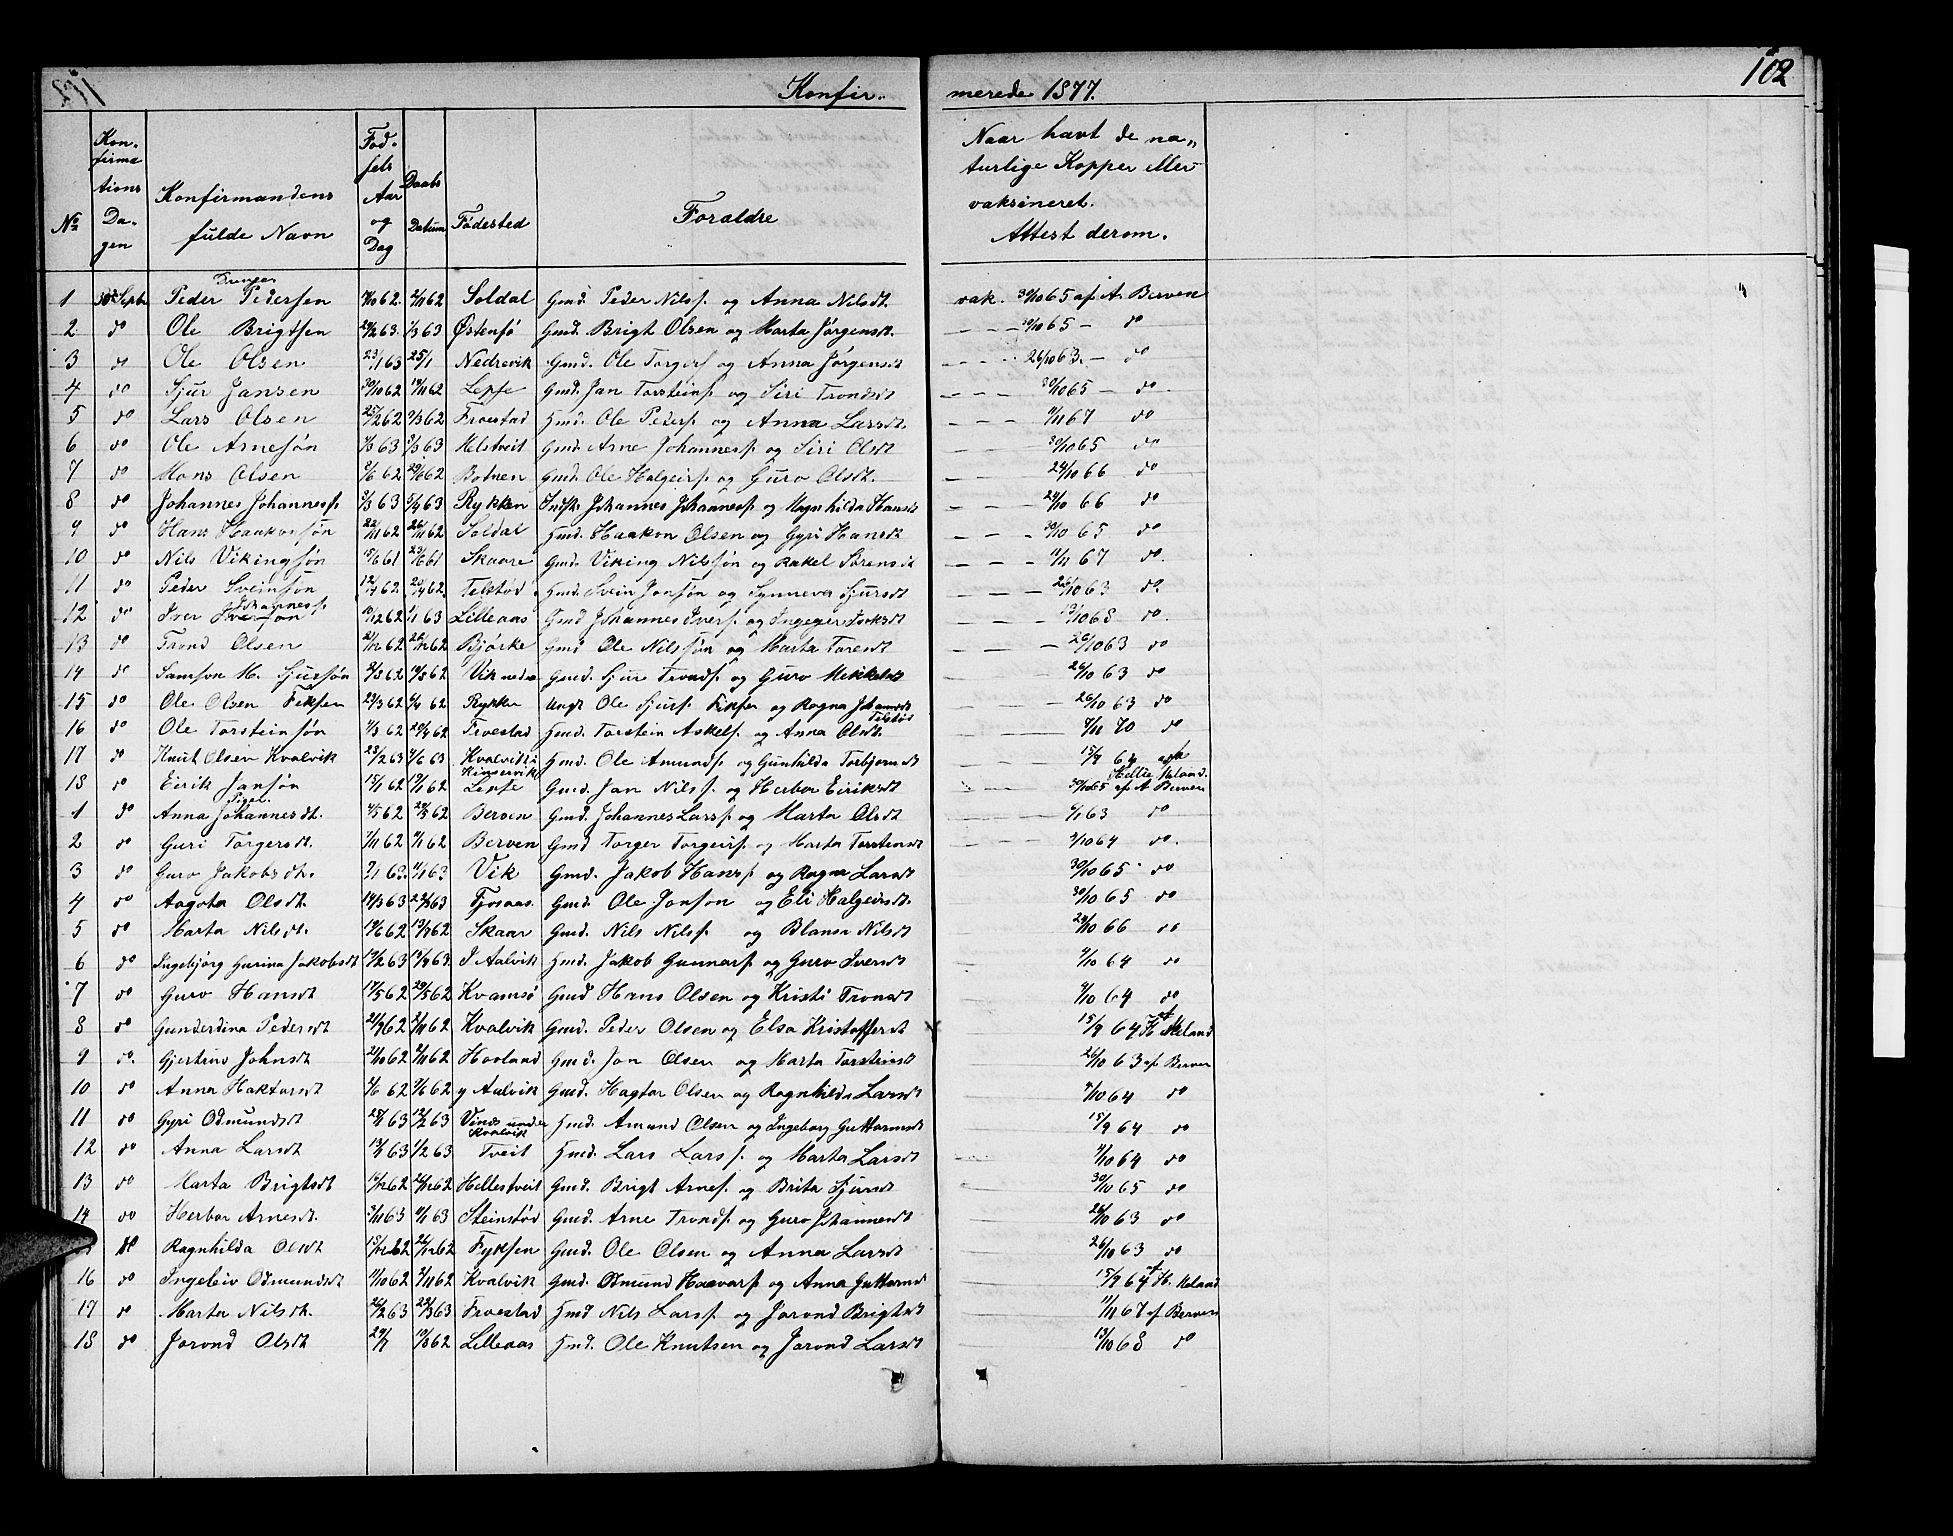 102
Konfir- merede 1877.
No
Kon-firma tions Da-gen
Konfirmandens fulde Navn
Fød-sels Aar og Dag
Daabs Datum
Fødested
Foraldre
Naar havt de na„ turlige Kopper eller vaksineret. Attest derom.
Drenger
1 30te Septbr Peder Pedersen 62. 2/11 62 Soldal Gmd. Peder Nilss. og Anna Nilsdt. vak. 30/10 65 af A. Berven
2 do Ole Brigtsen 63. 1/3 63 Østensø Gmd. Brigt Olsen og Marta Jørgensdt. – – – 30/10 65 – do
3 do Ole Olsen 23/1 63 25/1 Nedrevik Gmd. Ole Torgers. og Anna Jørgensdt – – – 26/10 63. – do
4 do Sjur Jansen 30/10 62 Lepse Gmd. Jan Torsteins. og Siri Trondsdt – – – 30/10 65 – do
5 do Lars Olsen 25/2 62 9/3 62 Froestad Hmd. Ole Peders. og Anna Larsdt. – – – 11/11 67 do
6 do Ole Arnesøn 63 63 Melstveit Gmd. Arne Johanness. og Siri Olsdt – – – 30/10 65 do
7 do Mons Olsen 62 62 Botnen Gmd. Ole Halgeirs. og Guro Olsdt. – – – 24/10 66 do
8 do Johannes Johanness. 63 63 Rykken Indst. Johannes Johanness. og Magnhilda Hansdt – – – 24/10 66 do
9 do Hans Haakonsøn 22/11 62 26/11 62 Soldal Hmd. Haakon Olsen og Gyri Hansdt – – – 30/10 65 do
10 do Nils Vikingsøn 15/6 61 61 Skaare Gmd. Viking Nilsøn og Rakel Sørensdt – – – 11/11 67 do.
11 do Peder Sveinsøn 12/4 62 20/4 62 Telstød. Hmd. Svein Jonsøn og Synneva Sjursdt – – – 26/10 63 do.
12 do Iver Johanness. 62 1/1 63 Lilleaas Gmd Johannes Ivers. og Ingeger Isaksdt – – – 13/10 68 do
13 do Trond Olsen 62 62 Bjørke Gmd Ole Nilsøn og Marta Toresdt – – – 26/10 63 do
14 do Samson M. Sjursøn 62 62 Vik nedre Gmd. Sjur Tronds. og Guro Mikkelsdt 26/10 63 do
15 do Ole Olsen Fiksen 23/3 62 62 Rykke Ungk Ole Sjurs. Fiksen og Ragna Johansdt Telstø 26/10 63 do
16 do Ole Torsteinsøn 62 20/4 62 Froestad Hmd. Torstein Askels. og Anna Olsdt. 70 do
17 do Knut Olsen Kvalvik 23/2 63 63 Kvalvik i Kinservik Hmd. Ole Amunds. og Gunhilda Torbjørnsdt 15/9 64 Meland.
18 do Eirik Jansøn 15/1 62 62 Lepse Gmd. Jan Nils. og Herbor Eiriksdt 30/10 65 af A Berven
Piger.
1 do Anna Johannesdt. 62 62 Berven Gmd. Johannes Larss. og Marta Olsdt 63 do
2 do Guri Torgersdt. 62 62 Berven Gmd Torger Torgeirs. og Marta Torsteinsdt 64 do.
3 do Guro Jakobsdt. 63 63 Vik Gmd. Jakob Hanss. og Ragna Larsdt 30/10 65 do
4 do Aagota Olsdt. 14/3 63 63 Fjosaas. Gmd. Ole Jonson og Eli Halgeirsdt. 30/10 65 do
5 do Marta Nilsdt. 62 62 Skaar Gmd. Nils Nils. og Blansa Nilsdt 24/10 66 do
6 do Ingebjørg Gurina Jakobsdt 63 63 I Aalvik Hmd. Jakob Gunnars. og Guro Iversdt 64 do
7 do Guro Hansdt 62 62 Kvamsø Gmd Hans Olsen og Kristi Tronsdt 64 do
8 do Gunderdina Pedersdt 62 62 Kvalvik Gmd. Peder Olsen og Elsa Kristoffersdt 15/9 64 af H Meland
9 do. Gjertrud Johnsdt 62 62 Haaland Gmd. Jon Olsen og Marta Torsteinsdt 26/10 63 af Berven
10 do Anna Haktorsdt 62 62 y Aalvik Gmd. Hagtor Olsen og Ragnhilda Larsdt 64 do
11 do Gyri Odmundsdt 63 63 Vinds under Kvalvik Hmd. Amund Olsen og Ingeborg Guttormsdt 15/9 64 do
12 do Anna Larsdt 63 1/2 63 Tveit Hmd. Lars Lars s. og Marta Larsdt 64 do
13 do Marta Brigtsdt 62 62 Hellestveit Gmd. Brigt Arnes. og Brita Sjursdt 30/10 65 do
14 do Herbor Arnesdt. 63 63 Steinstød Gmd. Arne Tronds. og Guro Johannesdt 26/10 63 do
do Ragnhilda Olsdt 62 62 Fyksen Gmd. Ole Olsen og Anna Larsdt 26/10 63 do
16 do Ingeleiv Odmundsdt 62 62 Kvalvik Gmd. Odmund Haavars. og Anna Guttormsdt 15/9 64 af H. Meland
17 do Marta Nilsdt. 63 63 Froestad Hmd Nils Larss. og Jorond Brigtsdt 11/11 67 af Berven
18 do Jorond Olsdt 62 Lilleaas Hmd. Ole Knutsen og Jorond Larsdt 13/10 68 do